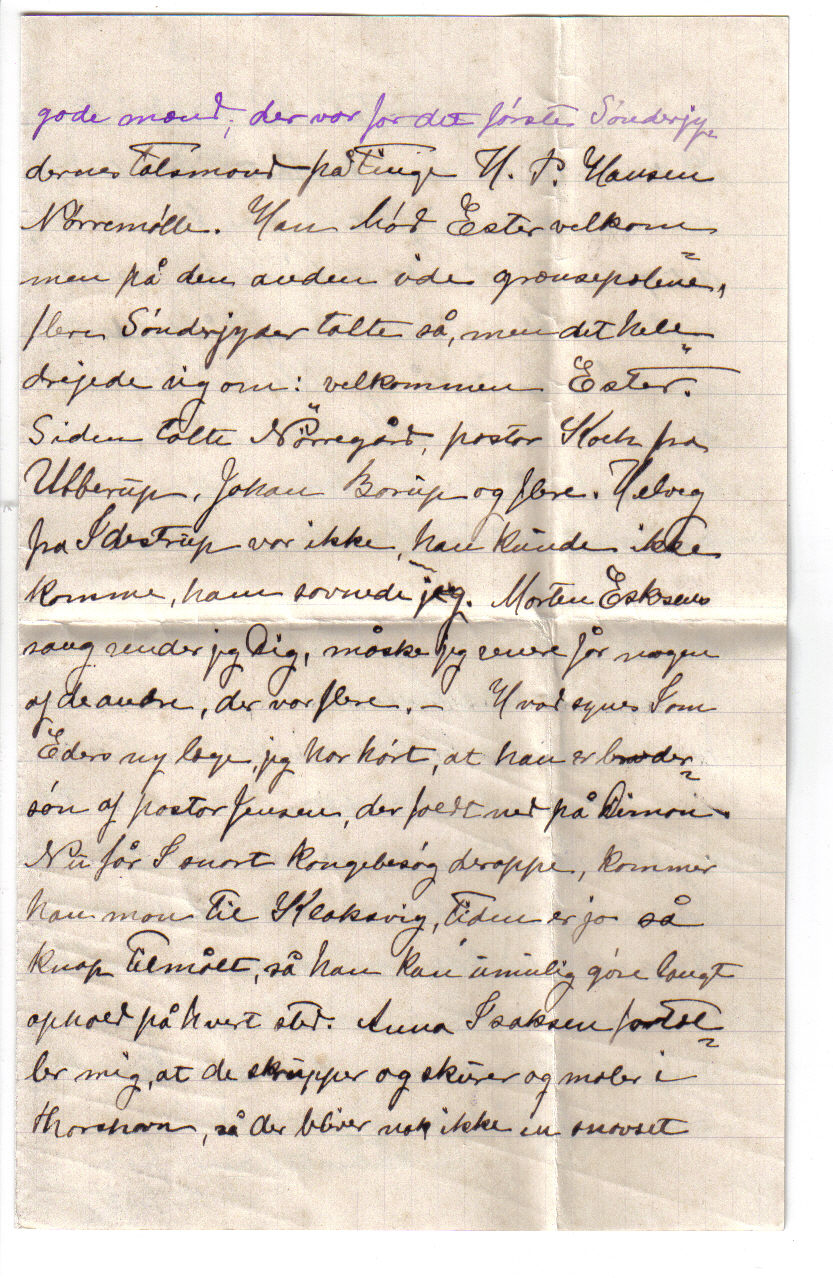 gode mænd; der var for det første Sønderjy=
dernes talsmand på tinge H. P. Hansen
Nørremølle. Han bød Ester velkom=
men på den anden side grænsepælene,
flere Sønderjyder talte så, men det hele
drejede sig om: velkommen Ester."
Siden talte Nørregård, pastor Koch fra
Ubberup, Johan Borup og flere. Helveg
fra Idestrup var ikke, han kunde ikke
komme, ham savnede jeg. Morten Eskesens
sang sender jeg Dig, måske jeg senere får nogen
af de andre, der var flere. – Hvad synes I om
Eders ny læge, jeg har hørt, at han er broder=
søn af pastor Jensen, der faldt ned på Dimon.
Nu får I snart kongebesøg deroppe, kommer
han mon til Klaksvig, tiden er jo så
knap tilmålt, så han kan umulig göre langt
ophold på hvert sted. Anna Isaksen fortæl=
ler mig, at de skrupper og skurer og maler i
Thorshavn, så der bliver nok ikke en snavset